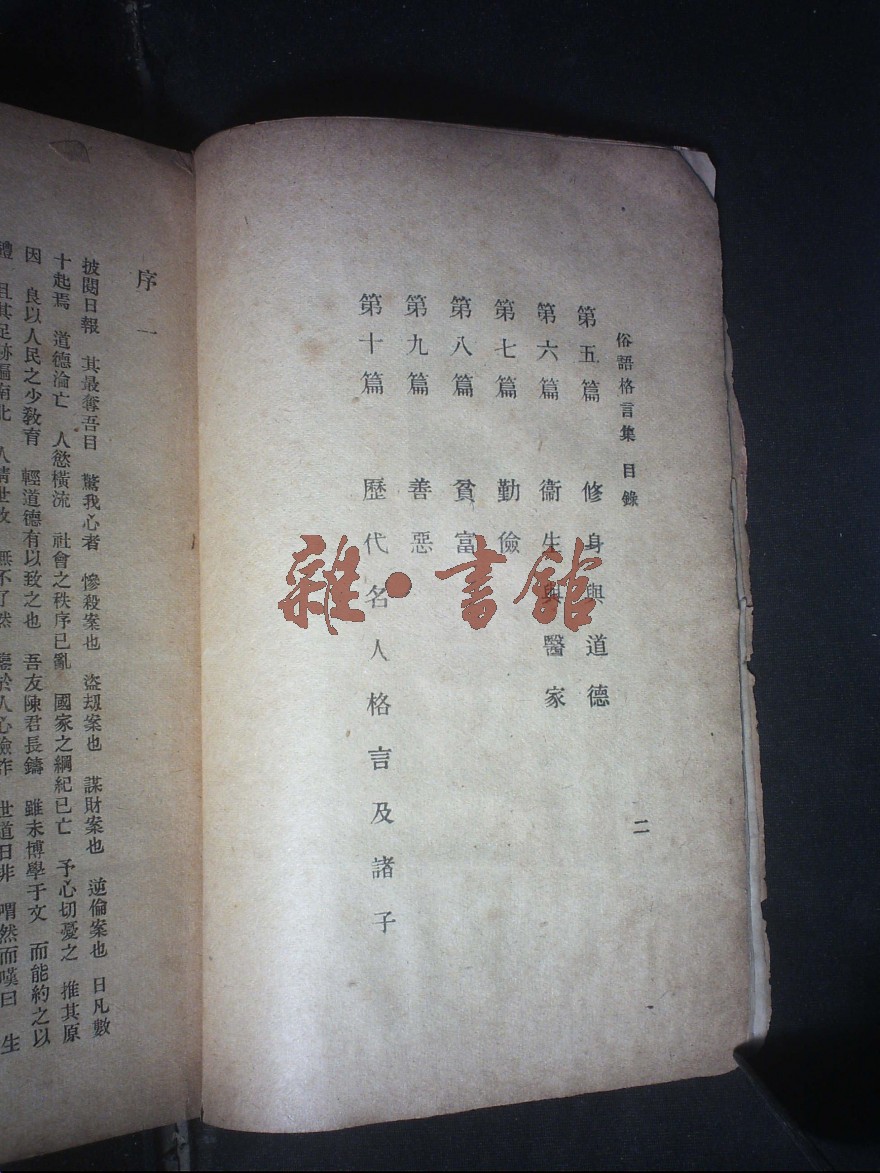 俗語格言集 目錄
二
第五篇 修身與道德
第六篇 衞生與醫家
第七篇 勤儉
第八篇 貧富
第九篇 善惡
第十篇 歷代名人格言及諸子
雜·書館
序一
披閱日報 其最奪吾目 驚我心者 慘殺案也 盜刼案也 謀財案也 逆倫案也 日凡數
十起焉 道德淪亡 人慾橫流 社會之秩序已亂 國家之綱紀已亡 予心切憂之 推其原
因 良以人民之少敎育 輕道德有以致之也 吾友陳君長鑄 雖未博學于文 而能約之以
禮 且其足跡遍南北 人情世故 無不了然 鑒於人心險詐 世道日非 喟然而嘆曰 生